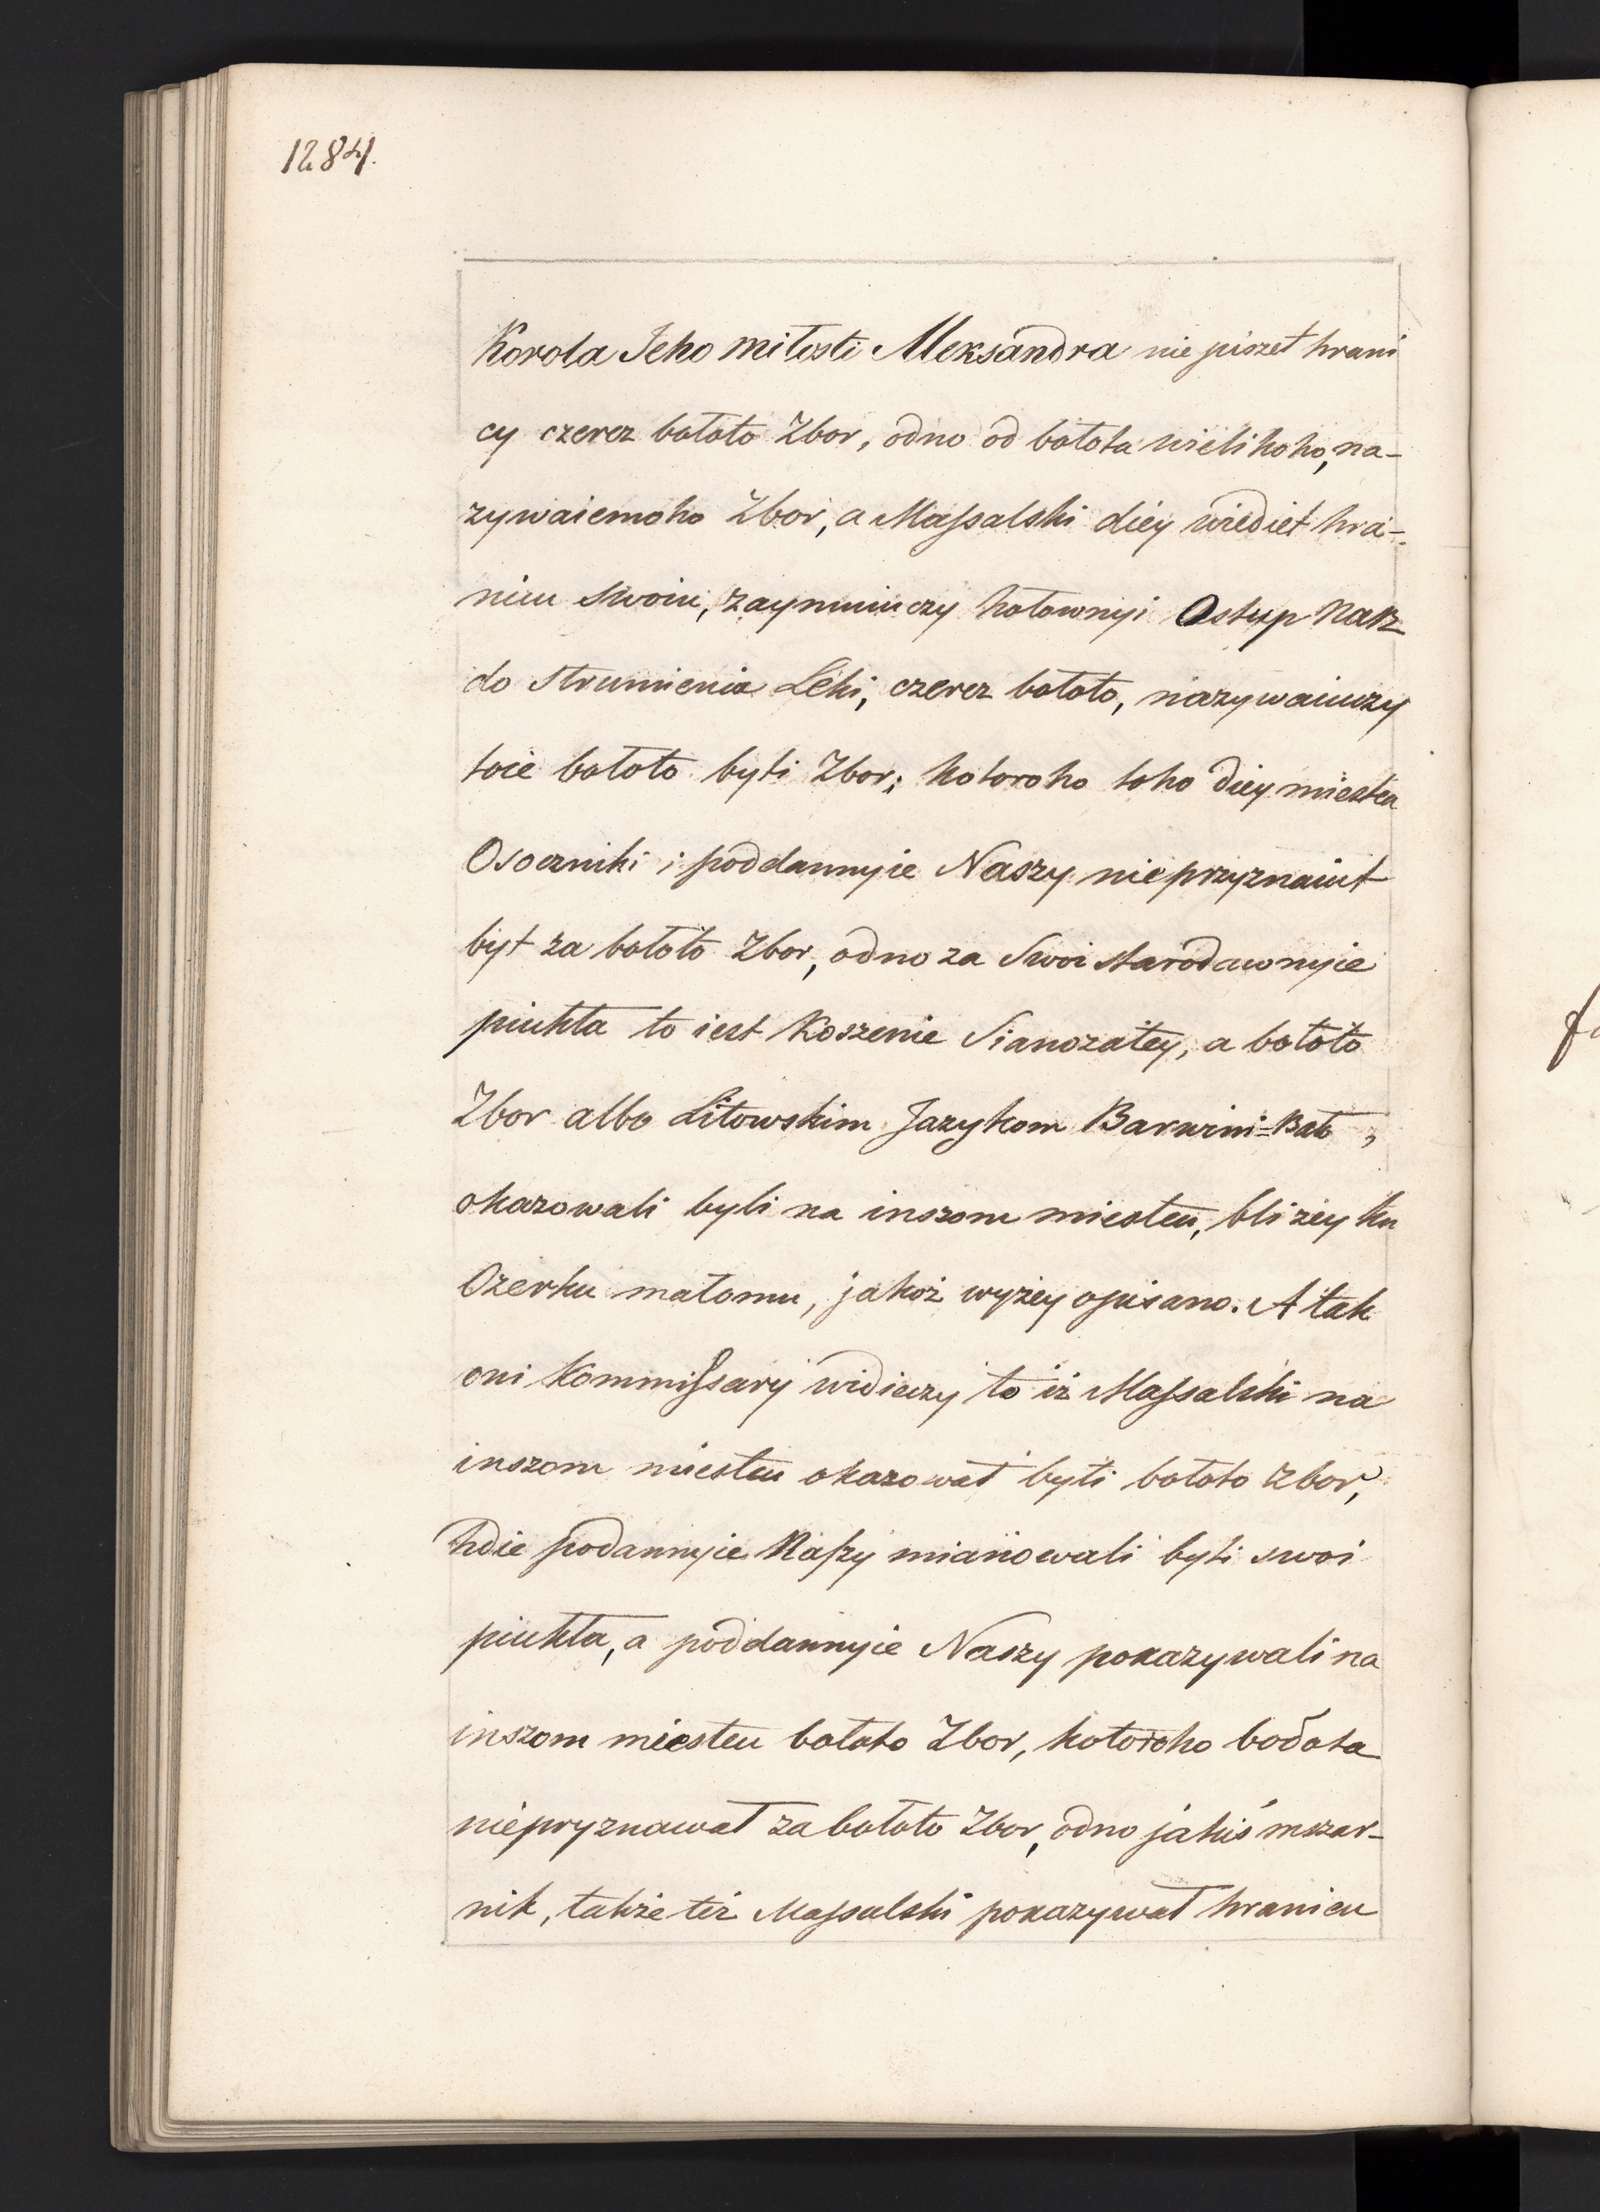 1284.
Korola Jeho miłosti Alexsandra nie piszet hrani
cy czerez bołoto Zbor, odno od bołota wielikoho, na-
zywaiemoho Zbor, a Maſsalski diey wiediet hra-
nicu swoiu, zaymuiuczy hołownyi Ostup Nasz
do Strumienia Leki, czerez bołoto, nazywaiuczy
toie bołoto byti Zbor; kotoroho toho diey miestca
Osoczniki i poddannyie Naszy nieprzyznaiut
byt za bołoto Zbor, odno za Swoi starodawnyie
piukła to iest Koszenie Sianożatey, a bołoto
Zbor albo Litowskim Jazykom Barwini=Bało,
okazowali byli na inszom miestcu, bliżey ku
Ozerku małomu, jakoż wyżey opisano. A tak
oni Kommiſsary widiaczy to iż Maſsalski na
inszom miestcu okazował byti bołoto Zbor,
hdie podannyie Naſzy mianowali byti swoi
piukła, a poddannyie Naszy pokazywali na
inszom miestcu bołoto Zbor, kotoroho bołota
niepryznawał za bołoto Zbor, odno jakiś mszar-
nik, także też Maſsalski pokazywał hranicu